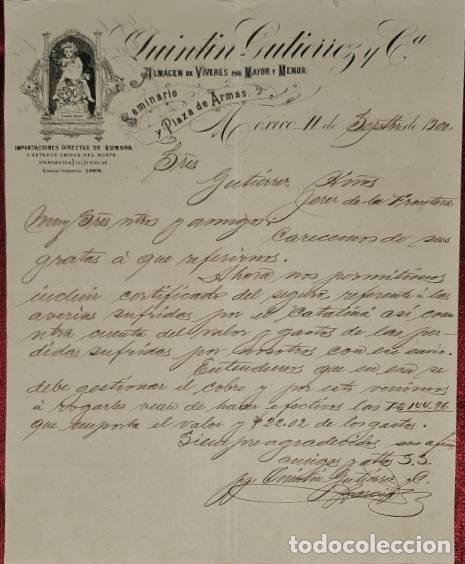 Quintin Gutierrez y Cª
ALMACEN DE VIVERES POR MAYOR Y MENOR.
Seminario
y Plaza de Armas.
IMPORTACIONES DIRECTAS DE EUROPA
Y ESTADOS UNIDOS DEL NORTE
México 11 de Septbre de 1900
Sres
Gutiérrez Hños
Jerez de la Frontera
Muy Sres ntros y amigos:
Carecemos de sus
gratas á que referirnos.
Ahora nos permitimos
incluir certificado del seguro referente á las
averias sufridas por el Catalina así como
ntra cuenta del valor y gastos de las per-
didas sufridas por nosotros con en envio.
Entendemos que en esa se
debe gestionar el cobro y por esto venimos
á rogarles vean de hacer efectivos los 144.96
que importa el valor y $22.02 de los gastos.
Siempre agradecidos sus afmos
amigos y attos S.S.
pp. Quintin Gutiérrez y C.
todocoleccion.net
todocoleccion